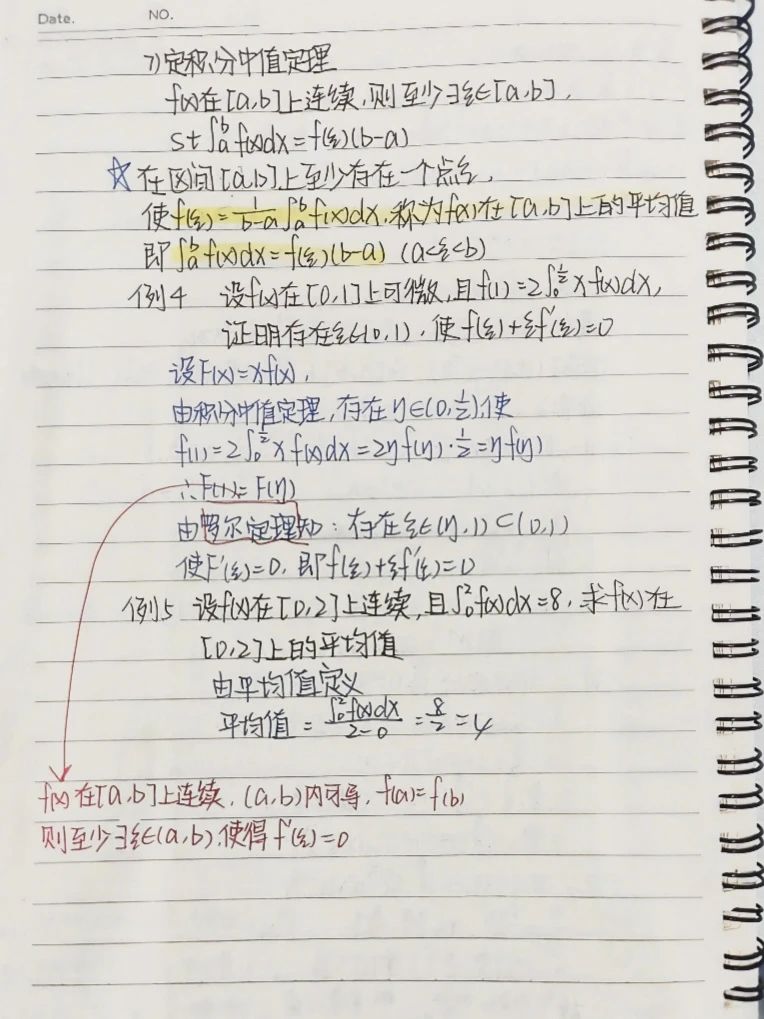 Date. NO.
7) 定积分中值定理
f(x)在[a,b]上连续,则至少∃ξ∈[a,b],
st ∫ₐᵇ f(x)dx=f(ξ)(b-a)
☆ 在区间[a,b]上至少存在一个点ξ,
使f(ξ)=1/(b-a) ∫ₐᵇ f(x)dx,称为f(x)在[a,b]上的平均值
即∫ₐᵇ f(x)dx=f(ξ)(b-a) (a<ξ<b)
例4 设f(x)在[0,1]上可微,且f(1)=2∫₀^(1/2) x f(x)dx,
证明存在ξ∈(0,1),使f(ξ)+ξf'(ξ)=0
设F(x)=xf(x),
由积分中值定理,存在η∈(0,1/2),使
f(1)=2∫₀^(1/2) x f(x)dx=2ηf(η)·1/2=ηf(η)
∴F(1)=F(η)
由罗尔定理知:存在ξ∈(η,1)⊂(0,1)
使F'(ξ)=0,即f(ξ)+ξf'(ξ)=0
例5 设f(x)在[0,2]上连续,且∫₀²f(x)dx=8,求f(x)在
[0,2]上的平均值
由平均值定义
平均值=∫₀²f(x)dx/(2-0)=8/2=4
f(x)在[a,b]上连续,(a,b)内可导,f(a)=f(b)
则至少∃ξ∈(a,b),使得f'(ξ)=0